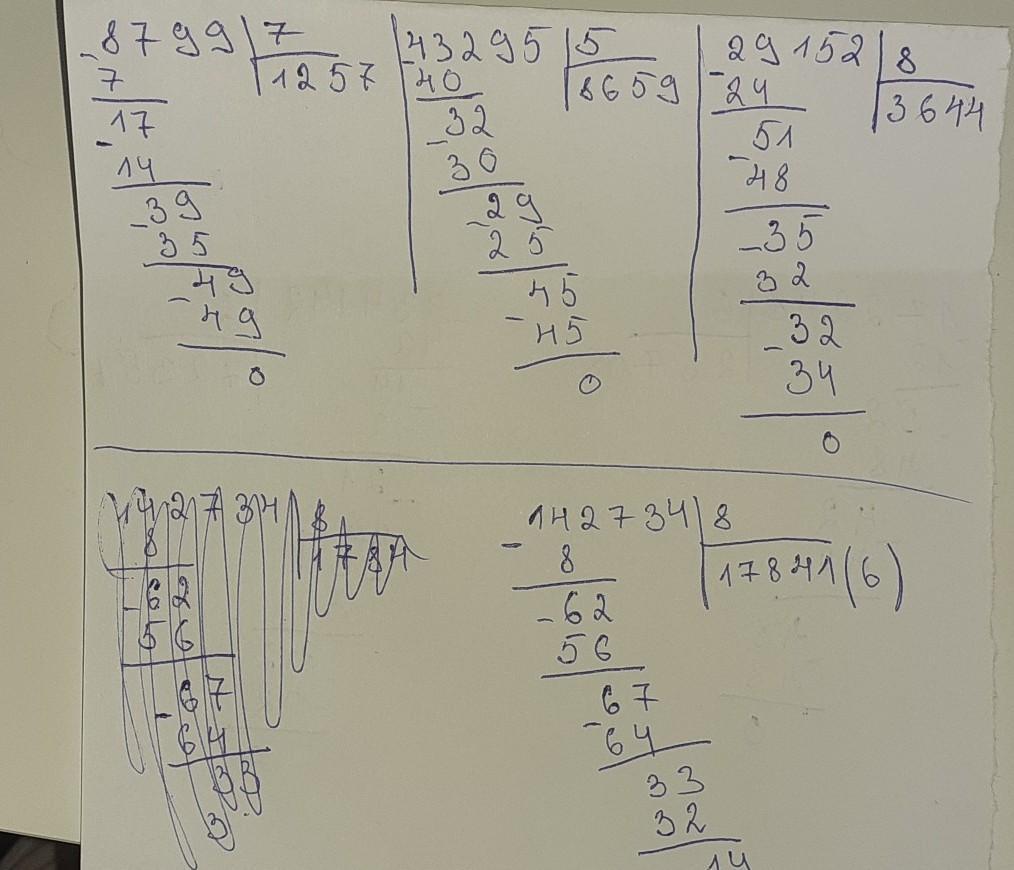 -8799 7
7 1257
17
-
14
-39
35
49
-
49
0
-43295 5
40 8659
-32
30
-29
25
45
-
45
0
-29152 8
24 3644
51
-
48
-35
32
-32
34
0
142734 8
8 1784
-62
56
67
-
64
33
3
-142734 8
8 17841(6)
-62
56
-67
64
33
32
14